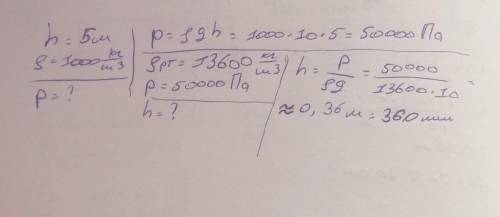 h = 5м
ρ = 1000 кг/m3
p = ?
p = ρgh = 1000·10·5 = 50000 Па
ρрт = 13600 кг/m3
p = 50000 Па
h = ?
h = p/ρg = 50000/13600·10
≈ 0,36 м = 360 мм